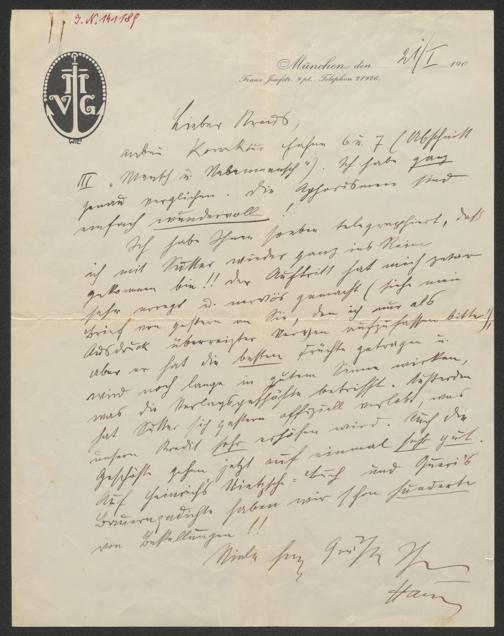 J.N. 141189
HVG
München den 21/I 190
Franz Josefstr. 9 pt. Telephon 21926.
Lieber Kraus,
anbei Korrektur Fahne 6 u. 7 (Abschnitt
III "Mensch u Nebenmensch"). Ich habe ganz
genau verglichen. Die Aphorismen sind
einfach wundervoll!
Ich habe Ihnen soeben telegraphiert, daß
ich mit wieder ganz ins Reine
gekommen bin!! Der Auftritt hat mich zwar
sehr erregt u. nervös gemacht (siehe mein
Brief von gestern an Sie, den ich nur als
Ausdruck überreizter Nerven aufzufassen bitte!),
aber er hat die besten Früchte getragen u.
wird noch lange in gutem Sinne wirken,
was die Verlagsgeschäfte betrifft. Außerdem
hat sich gestern offiziell verlobt, was
unsern Kredit sehr erhöhen wird. Auch die
Geschäfte gehen jetzt auf einmal sehr gut.
Auf Nietzsche-Buch und Queri's
haben wir schon hunderte
von Bestellungen!!
Viele Grüße Ihr